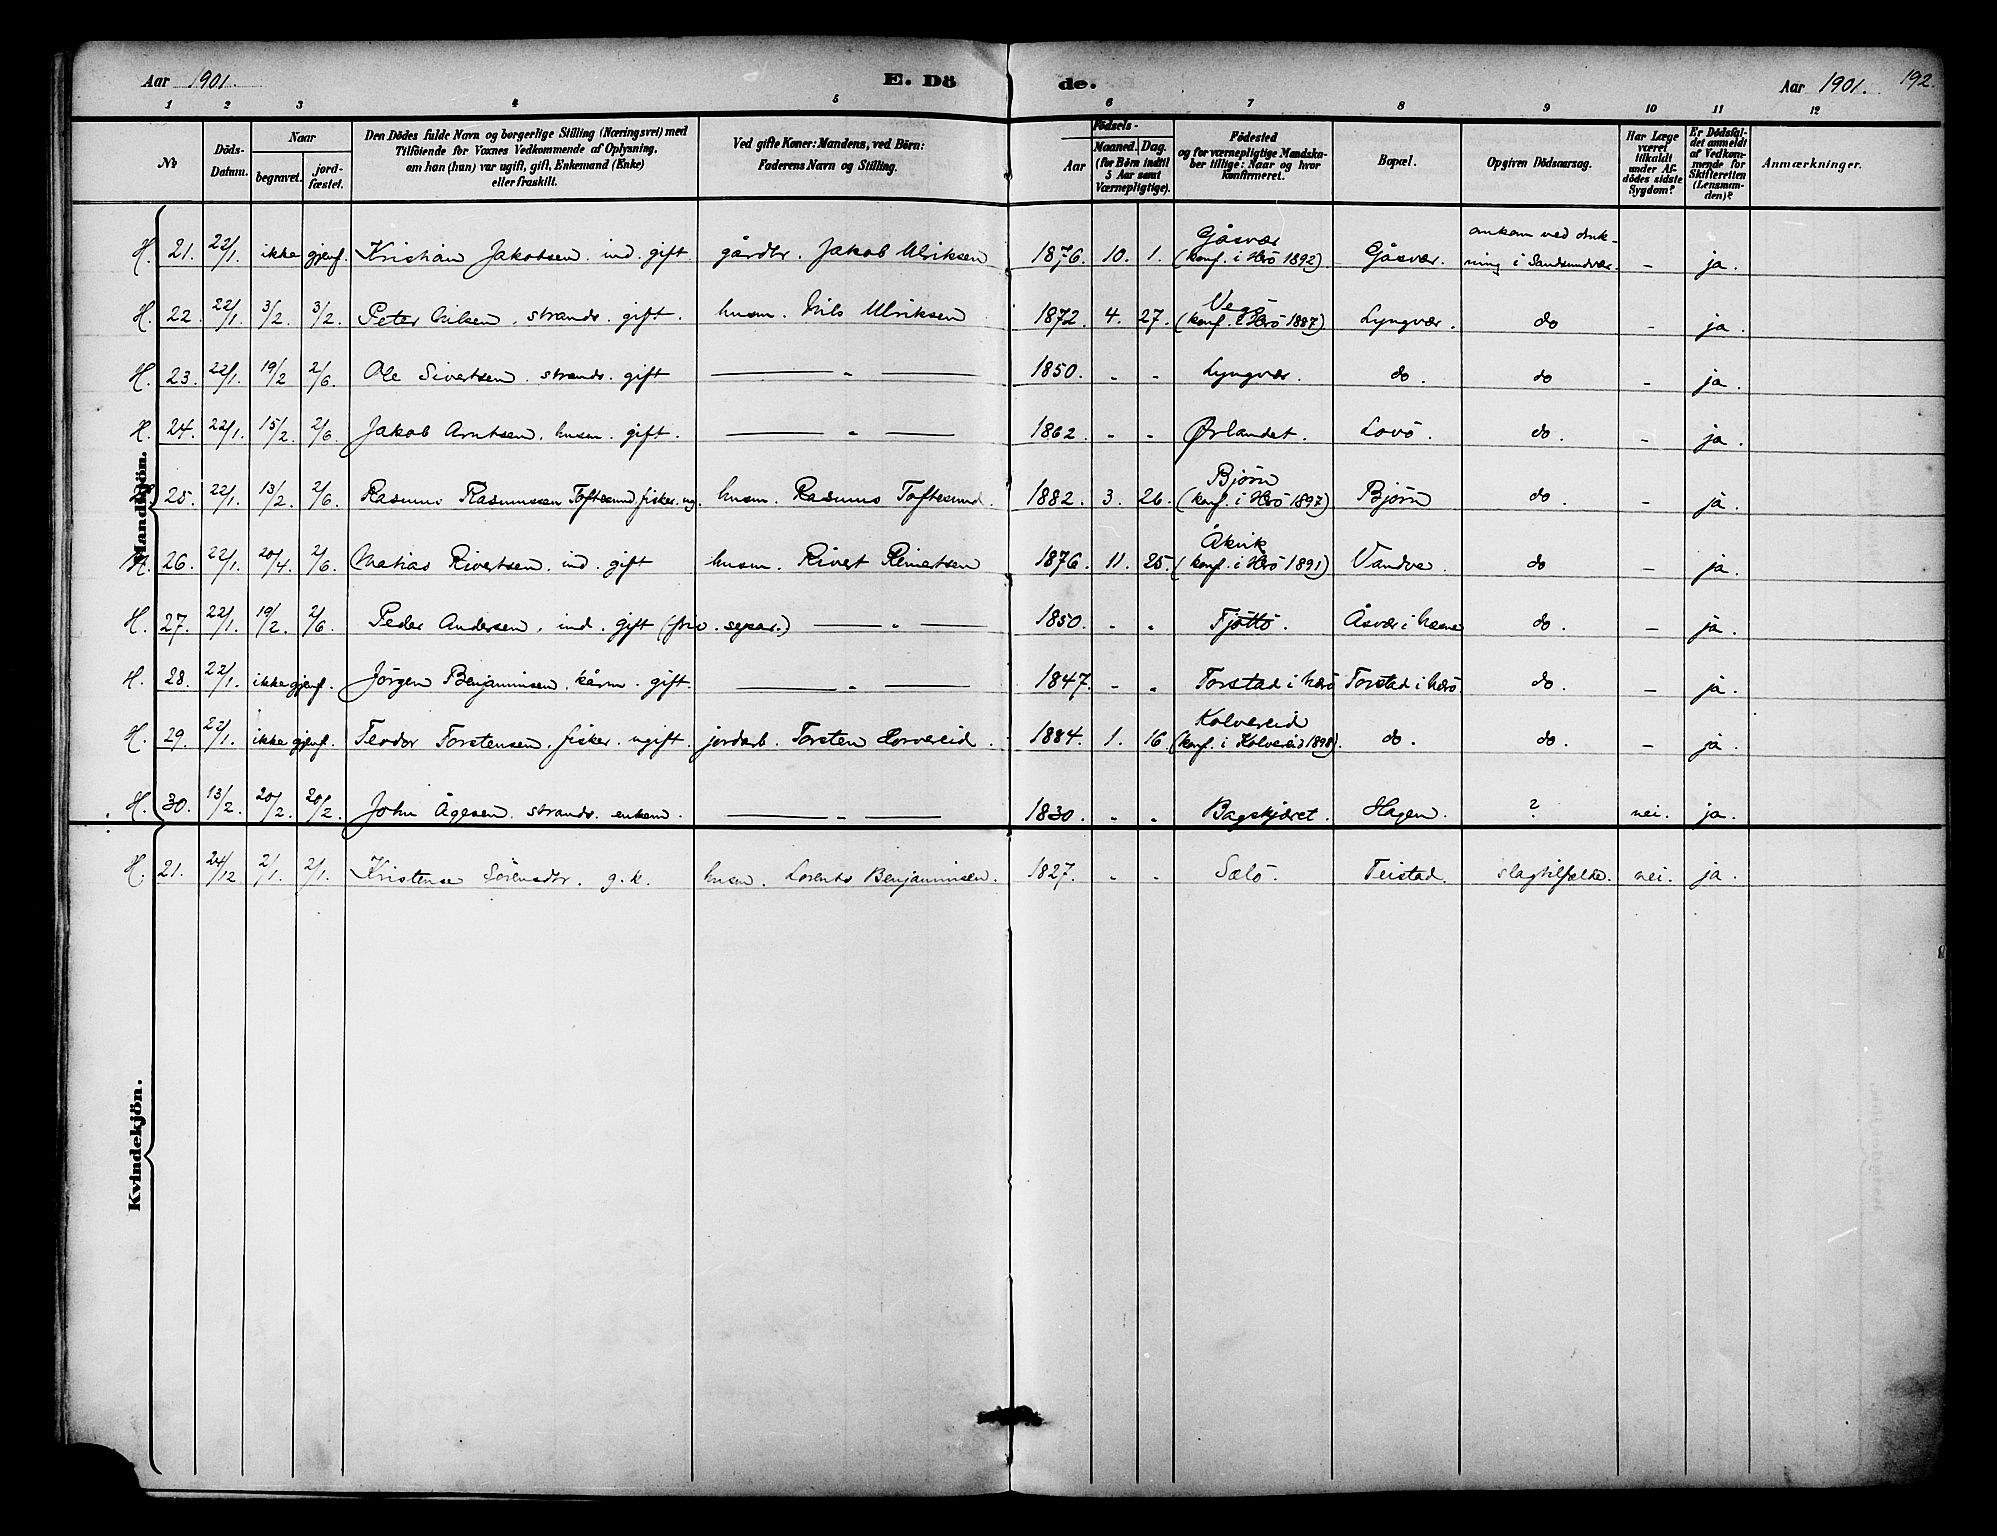 Aar 1901. E. Dö de. Aar 1901. 192.
1 2 3 4 5 6 7 8 9 10 11 12
No Döds-Datum. Naar begravet. jordfæstet. Den Dödes fulde Navn og borgerlige Stilling (Næringsvei) med Tilföiende for Voxnes Vedkommende af Oplysning, om han (hun) var ugift, gift, Enkemand (Enke) eller fraskilt. Ved gifte Koner: Mandens, ved Börn: Faderens Navn og Stilling. Födsels- Aar Maaned. Dag. (for Börn indtil 5 Aar samt Værnepligtige). Födested og for værnepligtige Mandskaber tillige: Naar og hvor konfirmeret. Bopæl. Opgiven Dödsaarsag. Har Læge været tilkaldt under Afdödes sidste Sygdom? Er Dödsfaldet anmeldt af Vedkommende for Skifteretten (Lensmanden)? Anmærkninger.
Mandkjön.
H. 21. 22/1. ikke gjenf. Kristian Jakobsen. ind. gift gårdbr. Jakob Ulriksen 1876. 10. 1. Gåsvær (konf. i Herö 1892) Gåsvær. omkom ved drukning i Sandsundvær. – ja.
H. 22. 22/1. 3/2. 3/2. Peter Nilsen. strands. gift. husm. Nils Ulriksen 1872. 4. 27. Vegö (konf. i Herö 1887) Lyngvær. do – ja.
H. 23. 22/1. 19/2 2/6. Ole Sivertsen. strands. gift — „ — 1850. „ „ Lyngvær. do. do – ja.
H. 24. 22/1. 15/2. 2/6. Jakob Arntsen. husm. gift. — „ — 1862. „ „ Ørlandet. Lovö. do. – ja.
H. 25. 22/1. 13/2. 2/6. Rasmus Rasmussen Toftesund fisker. ug. husm. Rasmus Toftesund. 1882. 3. 26. Bjørn (konf. i Herö 1897) Bjørn do. – ja.
H. 26. 22/1. 20/4. 2/6. Matias Rivertsen. ind. gift husm. Rivert Reinertsen 1876. 11. 25. Åkvik (konf. i Herö 1891) Vandve. do – ja.
H. 27. 22/1. 19/2. 2/6. Peder Andersen. ind. gift (for. separ.) — „ — 1850. „ „ Tjöttö. Åsvær i do. – ja.
H. 28. 22/1. ikke gjenf. Jörgen Benjaminsen. kårm. gift. — „ — 1847. „ „ Torstad i Herö Torstad i Herö do. – ja.
H. 29. 22/1. ikke gjenf. Teodor Torstensen. fisker. ugift. jordarb. Torsten 1884. 1. 16. Kolvereid (konf. i Kolvereid 1898). do. do. – ja.
H. 30. 13/2. 20/2. 20/2. John Ågesen. strands. enkem. — „ — 1830. „ „ Bagskjæret. Hagen. ? nei. ja.
Kvindekjön.
H. 21. 24/12 2/1. 2/1. Kristense Sörensdr. g.k. husm. Lorents Benjaminsen. 1827. „ „ Sælö. Teistad. slagtilfælde. nei. ja.